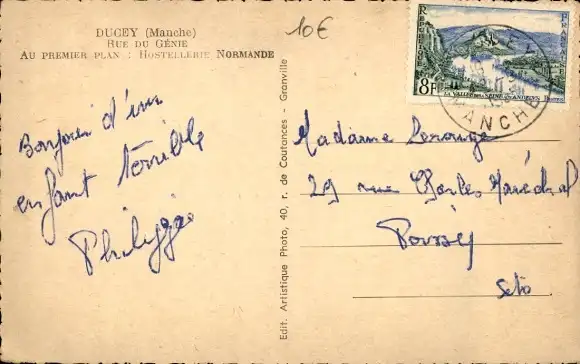 DUCEY (Manche)
RUE DU GÉNIE
AU PREMIER PLAN : HOSTELLERIE NORMANDE
10€
Bonjour d'un
enfant terrible
Philippe
Edit. Artistique Photo, 40, r. de Coutances - Granville
RÉPUBLIQUE FRANÇAISE
8F
LA VALLÉE DE LA SEINE AUX ANDELYS POSTES
MANCHE
Madame Lerouge
29 rue Charles Maréchal
Poissy